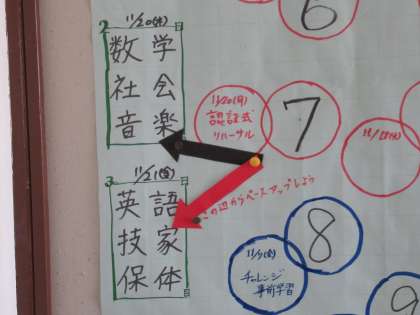 6
2 11/20(木)
数学
社会
音楽
11/20(月)
認証式
リハーサル
7
3 11/21(金)
英語
技家
保体
この辺からペースアップしよう
8
11/7(金)
チャレンジ
事前学習
9